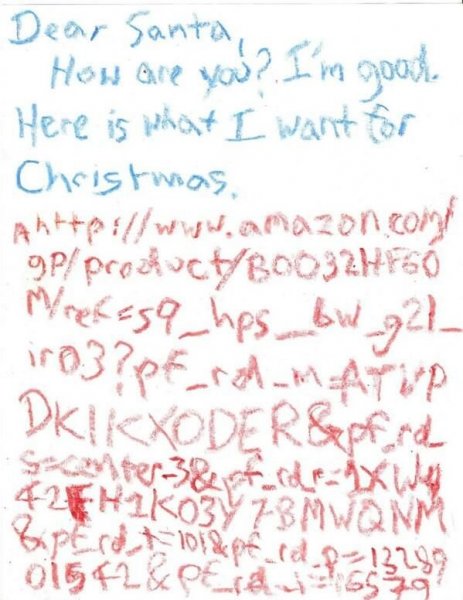 Dear Santa,
How are you? I'm good.
Here is what I want for
Christmas.
Ahttp://www.amazon.com/
gp/product/B0032HF60
M/ref=s9_hps_bw_g21_
ir03?pf_rd_m=ATVP
DKIKX0DER&pf_rd_
s=center-3&pf_rd_r=1XWY
42FH1K03Y78MWQNM
&pf_rd_t=101&pf_rd_p=13289
01542&pf_rd_i=165579